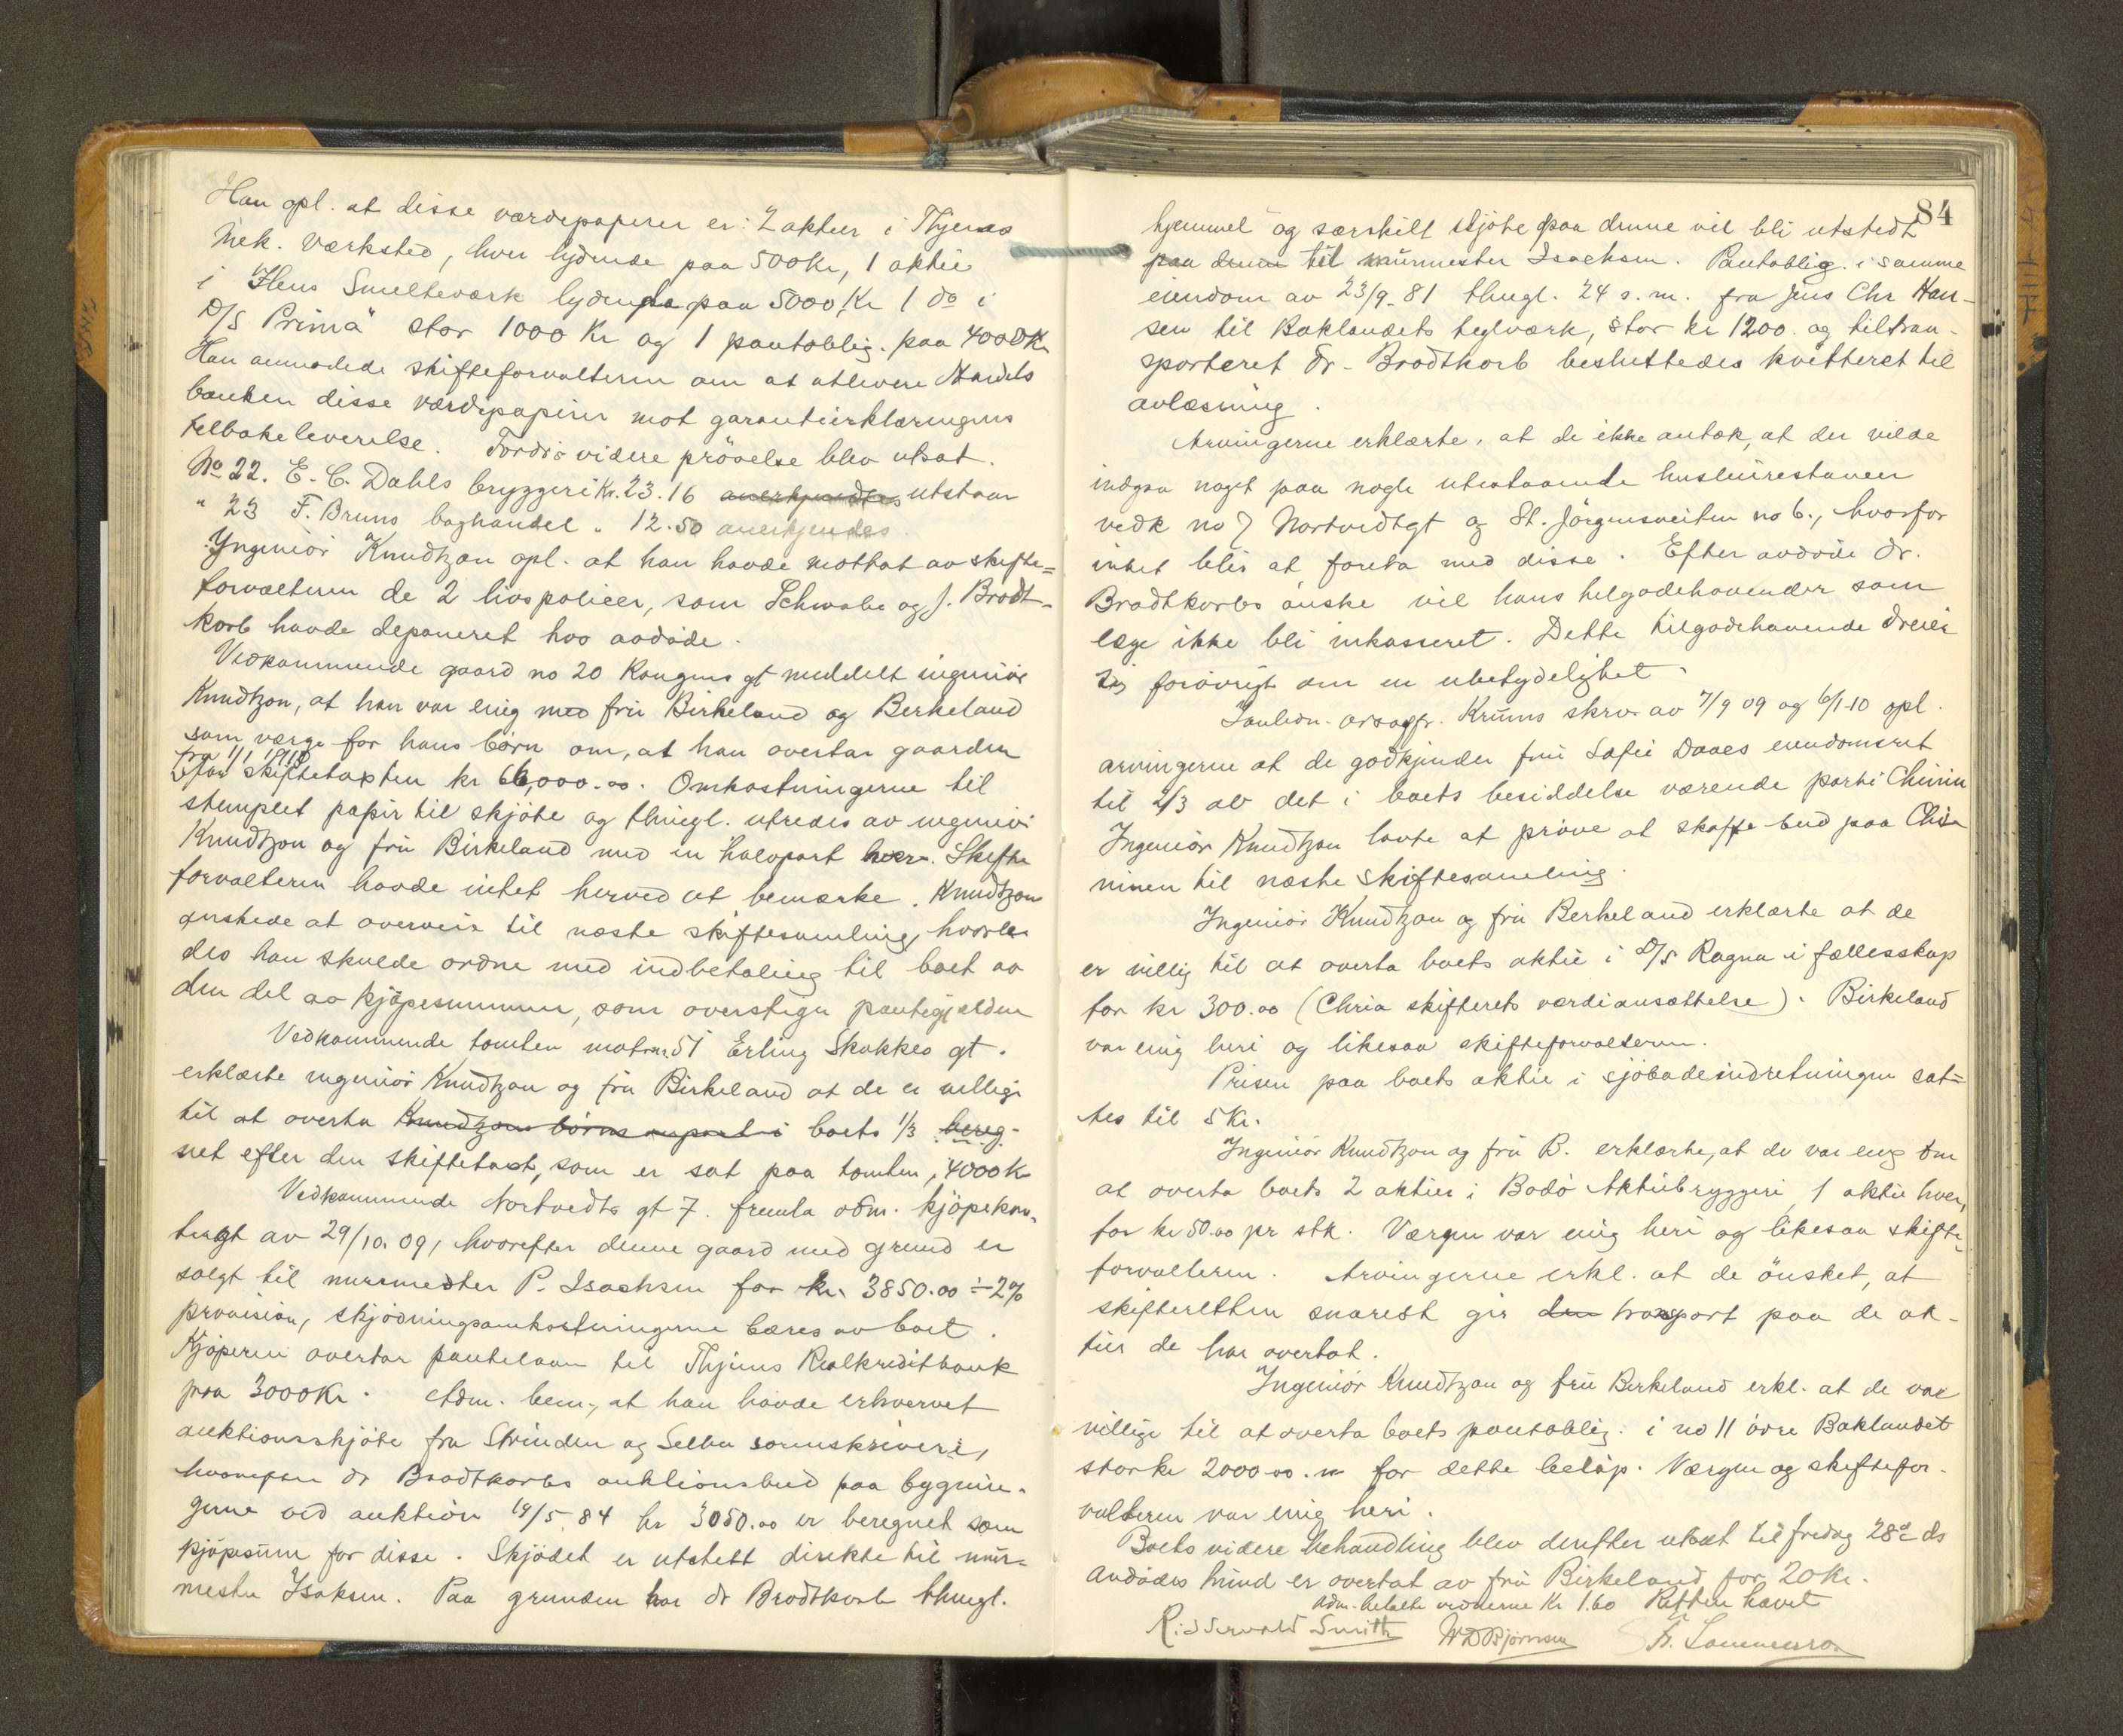 Han opl. at disse værdipapirer er: 2 aktier i Thjems
mek. Værksted, hver lydende paa 500 Kr, 1 aktie
i Ilens Smelteværk lydende paa 5000 Kr 1 do i
D/S "Prima" stor 1000 Kr og 1 pantoblig. paa 4000 Kr
Han anmodede skifteforvalteren om at utlevere Handels
banken disse værdipapirer mot garantierklæringens
tilbakeleverelse. Fordr. videre prövelse blev utsat.
No 22. E. C. Dahls bryggeri Kr. 23.16 anerkjendtes utstaar
" 23 F. Bruns boghandel " 12.50 anerkjendes
Ingeniör Knudtzon opl. at han havde mottat av skifte=
forvalteren de 2 livspolicer, som Schwabe og J. Brodt-
korb havde deponeret hos avdöde.
Vedkommende gaard no 20 Kongens gt meddelt ingeniör
Knudtzon, at han var enig med fru Birkeland og Berkeland
som værge for hans børn om, at han overtar gaarden
fra 1/1 1910
for skiftetaxten kr 66,000.00. Omkostningerne til
stemplet papir til skjöte og thingl. utredes av ingeniör
Knudtzon og fru Birkeland med en halvpart hver. Skifte
forvalteren havde intet herved at bemærke. Knudtzon
önskede at overveie til næste skiftesamling, hvorle
des han skulde ordne med indbetaling til boet av
den del av kjöpesummen, som overstiger pantegjælden
Vedkommende tomten matr.nr. 51 Erling Skakkes gt.
erklærte ingeniör Knudtzon og fru Birkeland at de er villige
til at overta Knudtzons börns anpart i boets 1/3 bereg-
net efter den skiftetaxt, som er sat paa tomten, 4000 K
Vedkommende Nortvedts gt 7. fremla adm. kjöpekon-
trakt av 29/10.09, hvorefter denne gaard med grund er
solgt til murmester P. Isachsen for kr. 3850.00 ÷ 2%
provision, skjödningsomkostningerne bæres av boet.
Kjöperen overtar pantelaan til Thjems Realkreditbank
paa 3000 Kr. Adm. bem., at han havde erhvervet
auktionsskjöte fra Strinden og Selbu sorenskriveri,
hvorefter dr Brodtkorbs auktionsbud paa bygnin-
gerne ved auktion 19/5 84 kr 3050.00 er beregnet som
kjöpesum for disse. Skjödet er utstett direkte til mur=
mester Isaksen. Paa grunden har dr Brodtkorb thingl.
84
hjemmel og særskilt skjöte paa denne vil bli utstedt
paa denne til murmester Isachsen. Pantoblig. i samme
eiendom av 23/9-81 thingl. 24 s.m. fra Jens Chr Han-
sen til Baklandets teglværk, stor kr 1200. og tiltran-
sporteret dr. Brodtkorb besluttedes kvitteret til
avlæsning.
Arvingerne erklærte, at de ikke antok, at der vilde
indgaa noget paa nogle utestaaende husleierestancer
vedk no 7 Nortvedtgt og St. Jörgensveiten no 6., hvorfor
intet blir at foreta med disse. Efter avdöde dr.
Brodtkorbs önske vil hans tilgodehavender som
læge ikke bli inkasseret. Dette tilgodehavende dreier
sig forövrigt om en ubetydelighet.
overretssagfr. Kruuns skrv. av 7/9 09 og 6/1-10 opl.
arvingerne at de godkjender fru Sofie Daaes eiendomsret
til 2/3 av det i boets besiddelse værende parti Chinin
Ingeniör Knudtzon lovte at pröve at skaffe bud paa Chi-
ninen til næste skiftesamling.
Ingeniör Knudtzon og fru Berkeland erklærte at de
er villig til at overta boets aktie i D/S Ragna i fællesskap
for kr 300.00 (Chria skifterets værdiansættelse). Birkeland
var enig heri og likesaa skifteforvalteren.
Prisen paa boets aktie i sjöbadeindretningen sat=
tes til 5 Kr.
Ingeniör Knudtzon og fru B. erklærte, at de var enig om
at overta boets 2 aktier i Bodö Aktiebryggeri, 1 aktie hver,
for kr 50.00 pr stk. Værgen var enig heri og likesaa skifte-
forvalteren. Arvingerne erkl. at de önsket, at
skifteretten snarest gir den transport paa de ak-
tier de har overtat.
Ingeniör Knudtzon og fru Birkeland erkl. at de var
villige til at overta boets pantoblig. i no 11 övre Baklandet
stor kr 2000.00. for dette belöp. Værgen og skiftefor-
valteren var enig heri.
Boets videre behandling blev derefter utsat til fredag 28de ds
Avdödes hund er overtat av fru Birkeland for 20 Kr.
Adm. betalte vidnerne Kr 1.60 Retten hævet
Ridderwold Smith W D Bjørnson